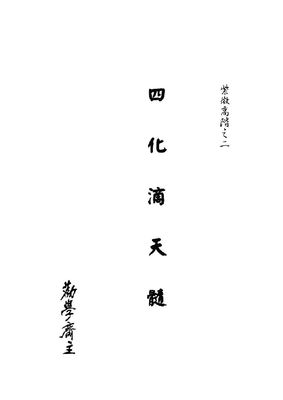 紫微高階之二
四化滴天髓
勸學齋主